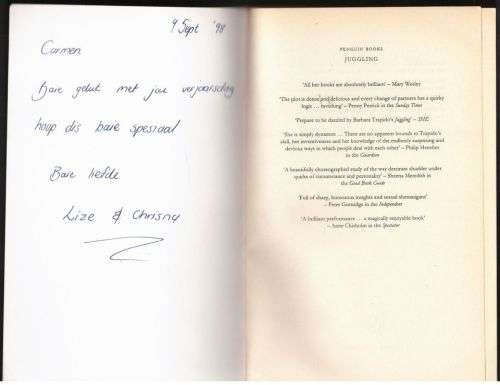 9 Sept '98
Carmen
Baie geluk met jou verjaarsdag
hoop dis baie spesiaal
Baie liefde
Lize & Chrisna
PENGUIN BOOKS
JUGGLING
'All her books are absolutely brilliant' – Mary Wesley
'The plot is dense and delicious and every change of partners has a quirky
logic … ravishing' – Penny Perrick in the Sunday Times
'Prepare to be dazzled by Barbara Trapido's Juggling' –
'She is simply dynamite … There are no apparent bounds to Trapido's
skill, her inventiveness and her knowledge of the endlessly surprising and
devious ways in which people deal with each other' – Philip Hensher
in the Guardian
'A beautifully choreographed study of the way destinies shudder under
quirks of circumstance and personality' – Shyama Perera in
the Good Book Guide
'Full of sharp, humorous insights and sexual shenanigans'
– in the Independent
'A brilliant performance … a magically enjoyable book'
– Anne Chisholm in the Spectator